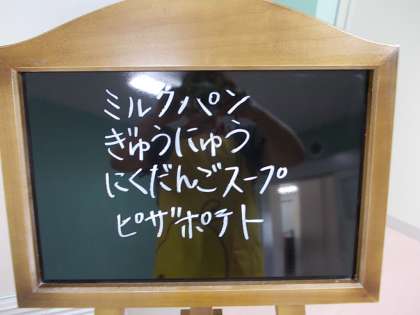 ミルクパン
ぎゅうにゅう
にくだんごスープ
ピザポテト